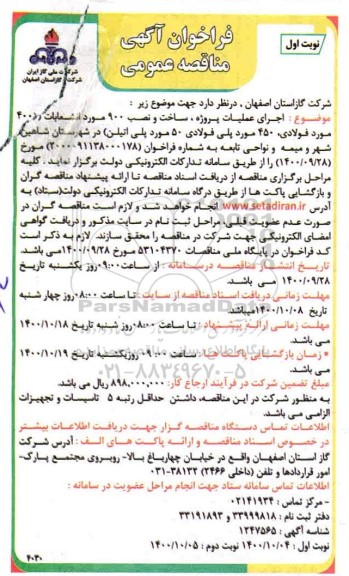 نوبت اول
فراخوان آگهی
مناقصه عمومی
شرکت ملی گاز ایران
شرکت گاز استان اصفهان
شرکت گازاستان اصفهان ، درنظر دارد جهت موضوع زیر :
موضوع : اجرای عملیات پروژه ، ساخت و نصب ۹۰۰ مورد انشعابات (۴۰۰
مورد فولادی، ۴۵۰ مورد پلی فولادی ۵۰ مورد پلی اتیلن) در شهرستان شاهین
شهر و میمه و نواحی تابعه به شماره فراخوان (۲۰۰۰۰۹۱۱۳۸۰۰۰۱۷۸) مورخ
(۱۴۰۰/۰۹/۲۸) را از طریق سامانه تدارکات الکترونیکی دولت برگزار نماید . کلیه
مراحل برگزاری مناقصه از دریافت اسناد مناقصه تا ارائه پیشنهاد مناقصه گران
و بازگشایی پاکت ها از طریق درگاه سامانه تدارکات الکترونیکی دولت(ستاد) به
آدرس www.setadiran.ir انجام خواهد شد و لازم است مناقصه گران در
صورت عدم عضویت قبلی،مراحل ثبت نام در سایت مذکور و دریافت گواهی
امضای الکترونیکی جهت شرکت در مناقصه را محقق سازند. لازم به ذکر است
کد فراخوان در پایگاه ملی مناقصات ۵۳۱۰۴۳۷۰ مورخ ۱۴۰۰/۰۹/۲۸می باشد.
تاریخ انتشار مناقصه درسامانه : از ساعت:۰۹:۰۰روز یکشنبه تاریخ
۱۴۰۰/۰۹/۲۸ می باشد.
مهلت زمانی دریافت اسناد مناقصه از سایت : تا ساعت ۰۸:۰۰ روز چهار شنبه
تاریخ ۱۴۰۰/۱۰/۰۸میباشد
مهلت زمانی ارائه پیشنهاد : تا ساعت :۰۸:۰۰ روز شنبه تاریخ ۱۴۰۰/۱۰/۱۸
می باشد.
زمان بازگشایی پاکت ها: ساعت ۰۹:۰۰ روزیکشنبه تاریخ ۱۴۰۰/۱۰/۱۹
می باشد
ParsNamadData
۰۲۱-۸۸۳۴۹۶۷۰-۵
مبلغ تضمین شرکت در فرآیند ارجاع کار: ۸۹۸,۰۰۰,۰۰۰ ریال می باشد.
به منظور شرکت در این مناقصه، داشتن حداقل رتبه ۵ تاسیسات و تجهیزات
الزامی می باشد.
اطلاعات تماس دستگاه مناقصه گزار جهت دریافت اطلاعات بیشتر
در خصوص اسناد مناقصه و ارائه پاکت های الف : آدرس شرکت
گاز استان اصفهان واقع در خیابان چهارباغ بالا- روبروی مجتمع پارک-
امور قراردادها و تلفن (داخلی ۲۴۶۶) ۳۸۱۳۲-۰۳۱
اطلاعات تماس سامانه ستاد جهت انجام مراحل عضویت در سامانه :
- مرکز تماس : ۰۲۱۴۱۹۳۴
دفتر ثبت نام : ۳۳۹۹۹۸۱۸ و ۳۳۱۹۱۸۹۳
شناسه آگهی : ۱۲۴۷۵۶۵
نوبت اول : ۱۴۰۰/۱۰/۰۴ نوبت دوم : ۱۴۰۰/۱۰/۰۵
۴۰۳۰